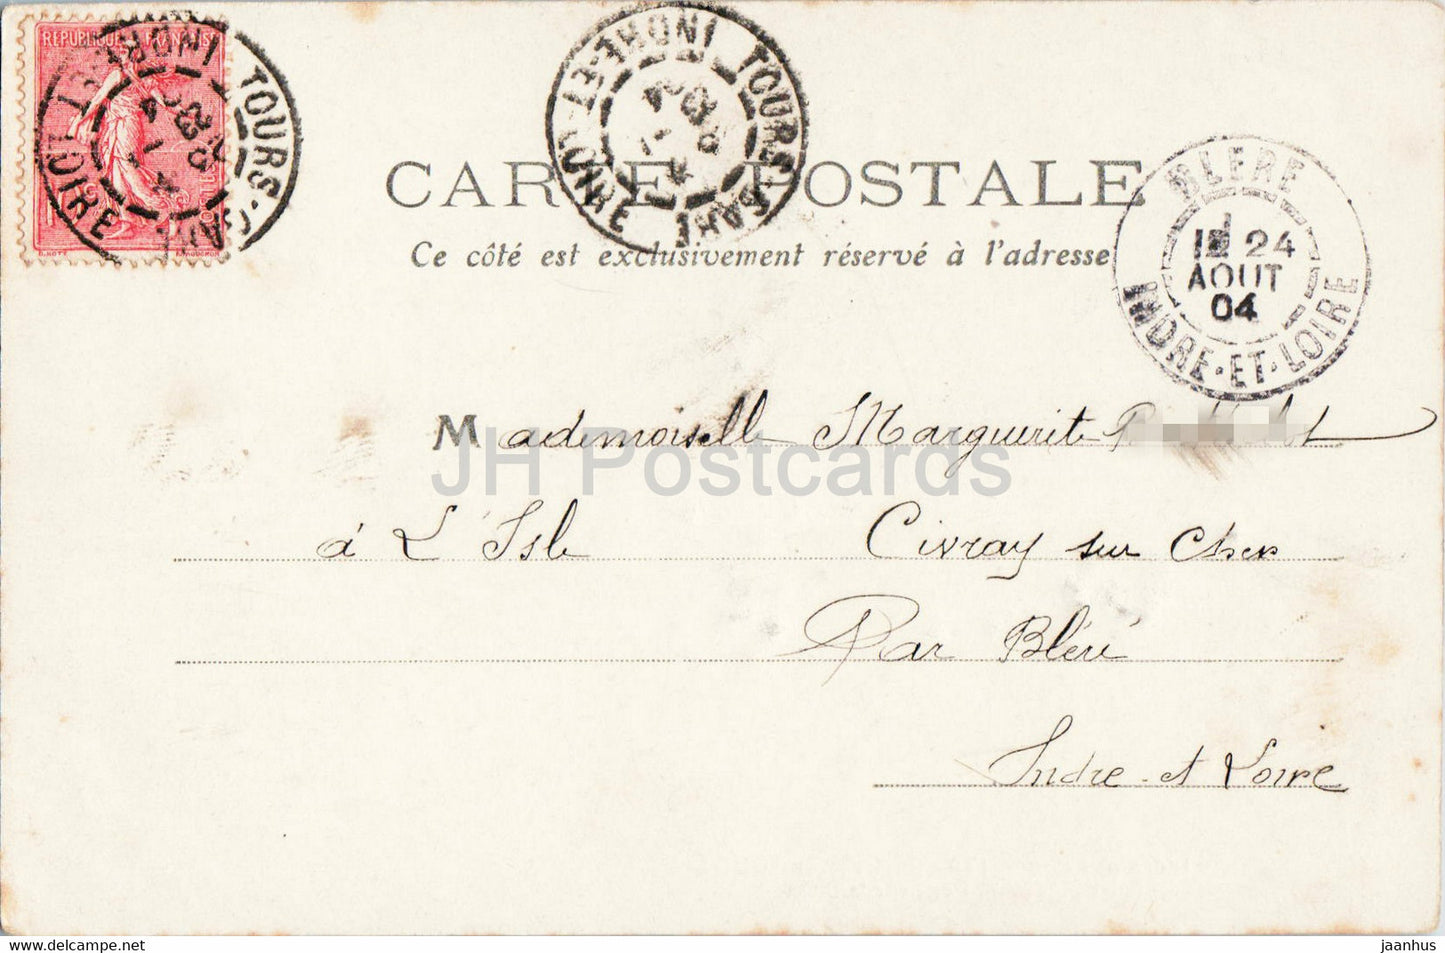 REPUBLIQUE FRANÇAISE
TOURS-GARE
INDRE-ET-LOIRE
TOURS-GARE
INDRE-ET-LOIRE
CARTE POSTALE
Ce côté est exclusivement réservé à l'adresse
BLERE
24
AOUT
04
INDRE-ET-LOIRE
Mademoiselle Marguerite
JH Postcards
à L'Isle Civray sur Cher
Par Bléré
Indre et Loire
www.hippostcard.com
jaanhus